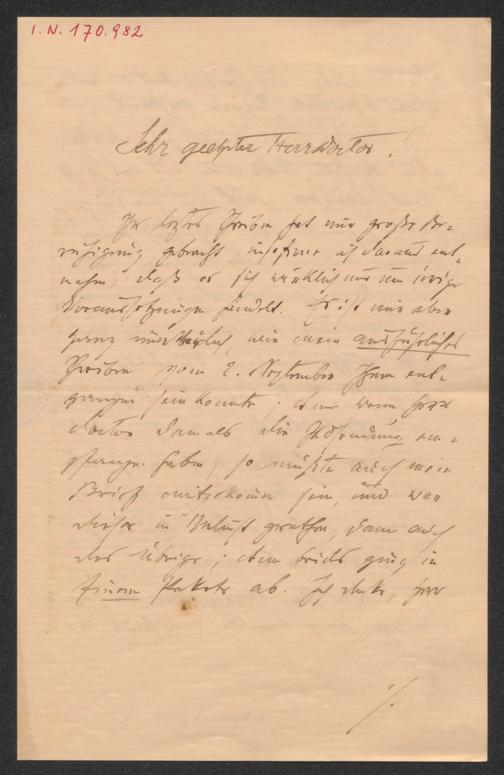 I. N. 170.982
Sehr geehrter Herr Doctor!
Ihr letztes Schreiben hat mir große Be-
ruhigung gebracht insoferne ich daraus ent-
nehme, daß es sich wirklich nur um irrige
Voraussetzungen handelt. Es ist mir aber
ganz unerklärlich, wie mein ausführliches
Schreiben vom 2. September Ihnen ent-
gangen sein konnte; denn wenn Herr
Doctor damals die Zusendung em-
pfangen haben, so mußte auch mein
Brief mitgekommen sein, und war
dieser in Verlust gerathen, dann auch
das Übrige; denn beides ging in
Einem Pakete ab. Ich denke, Herr
./.